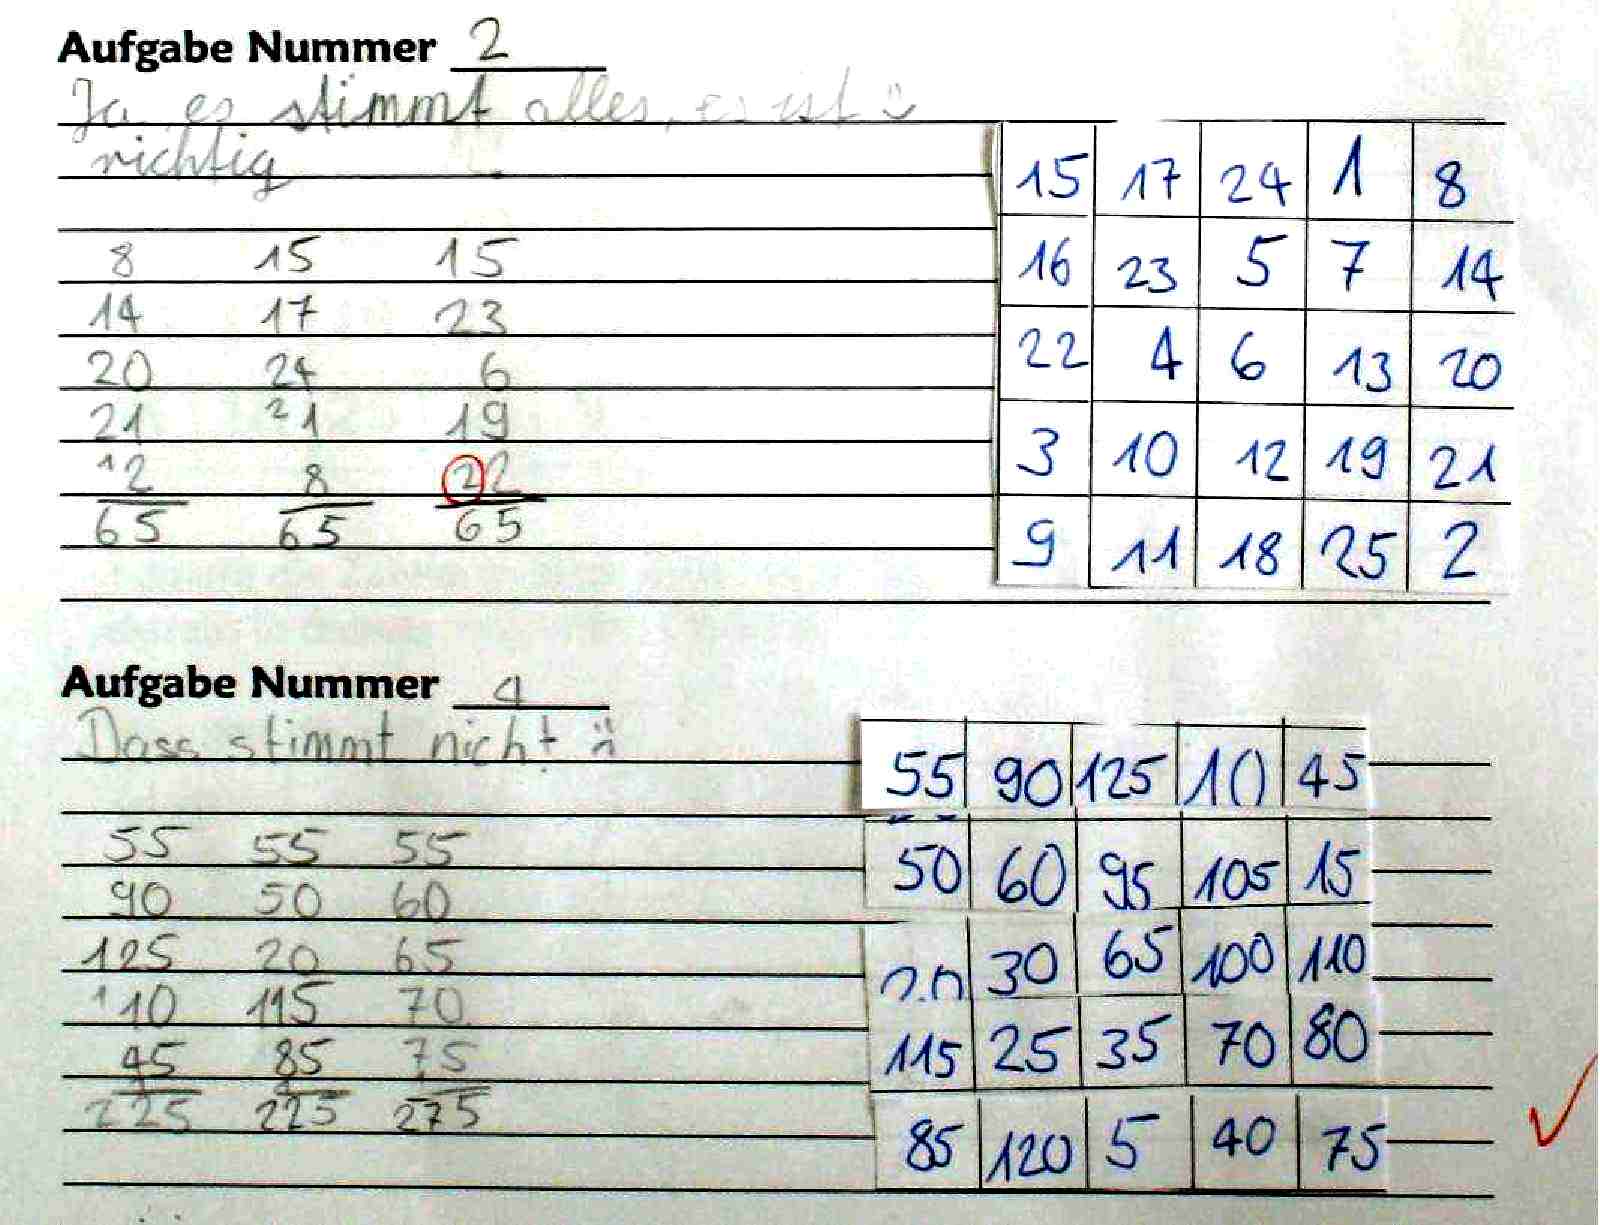 Aufgabe Nummer 2
Ja es stimmt alles, es ist
richtig
8 15 15
14 17 23
20 24 6
21 1 19
12 8 22
65 65 65
15 17 24 1 8
16 23 5 7 14
22 4 6 13 20
3 10 12 19 21
9 11 18 25 2
Aufgabe Nummer 4
Dass stimmt nicht!
55 55 55
90 50 60
125 20 65
10 115 70
45 85 75
225 225 275
55 90 125 10 45
50 60 95 105 15
20 30 65 100 110
115 25 35 70 80
85 120 5 40 75